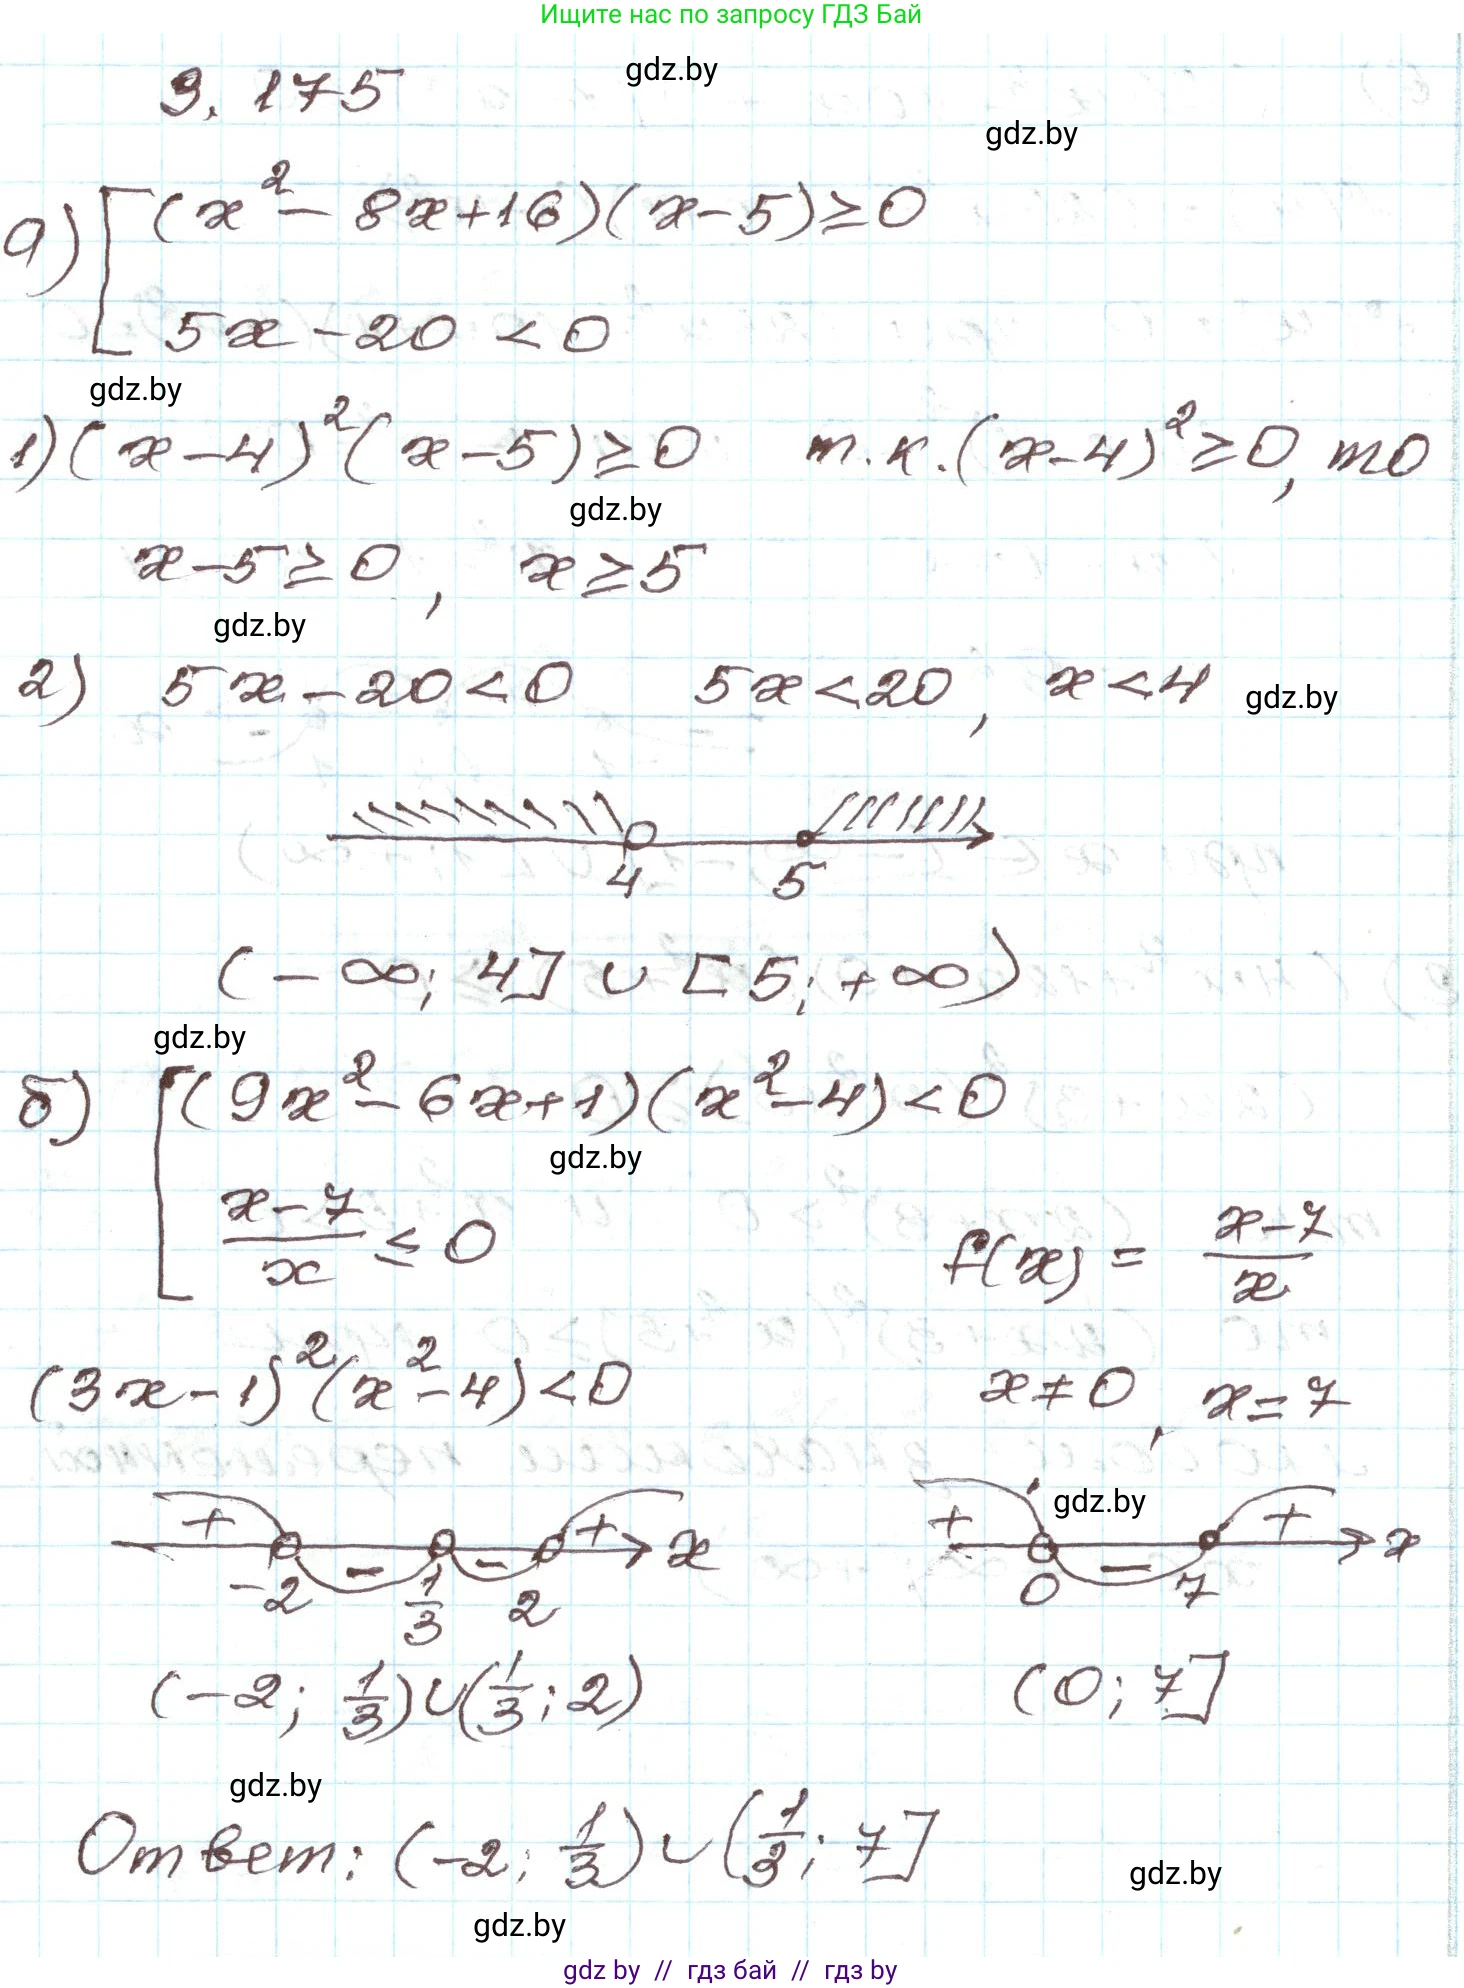 Ищите нас по запросу ГДЗ Бай
gdz.by
3.175
gdz.by
а) [ (x² - 8x + 16)(x - 5) ≥ 0
5x - 20 < 0
gdz.by
1) (x - 4)² (x - 5) ≥ 0 т.к. (x - 4)² ≥ 0, то
gdz.by
x - 5 ≥ 0, x ≥ 5
gdz.by
2) 5x - 20 < 0 5x < 20, x < 4 gdz.by
4 5
(-∞; 4] ∪ [5; +∞)
gdz.by
б) [ (9x² - 6x + 1)(x² - 4) < 0
gdz.by
(x - 7)/x ≤ 0 f(x) = (x - 7)/x
(3x - 1)² (x² - 4) < 0 x ≠ 0, x = 7
gdz.by
+ - - + x + - + x
-2 1/3 2 0 7
(-2; 1/3) ∪ (1/3; 2) (0; 7]
gdz.by
Ответ: (-2; 1/3) ∪ (1/3; 7]
gdz.by
gdz.by
gdz by // гдз бай // гдз by